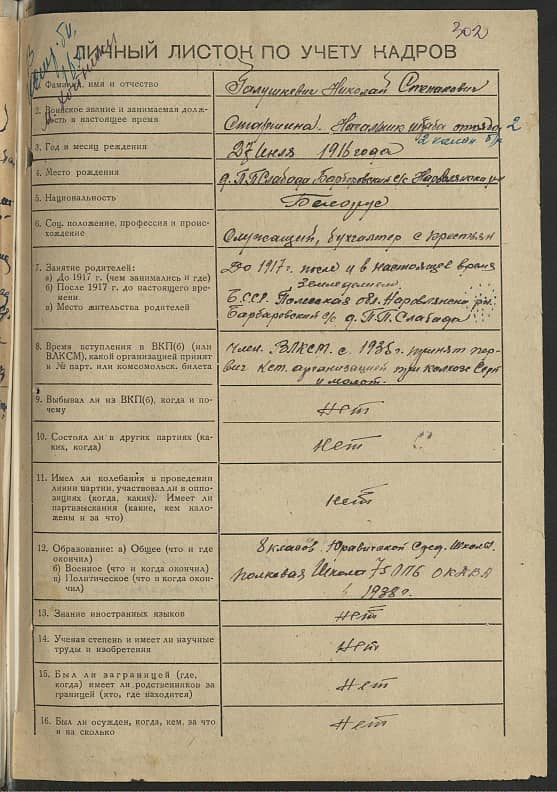 302
ЛИЧНЫЙ ЛИСТОК ПО УЧЕТУ КАДРОВ
1. Фамилия, имя и отчество
Галушкевич Николай Степанович
2. Воинское звание и занимаемая долж-
ность в настоящее время
Старшина. Начальник штаба отряда 2
3. Год и месяц рождения
27 Июля 1916 года
4. Место рождения
д. П.П. Слабода Барбаровский с/с Наровлянский р-н
5. Национальность
Белорус
6. Соц. положение, профессия и проис-
хождение
Служащий, бухгалтер с крестьян
7. Занятие родителей:
а) До 1917 г. (чем занимались и где)
б) После 1917 г. до настоящего вре-
мени
в) Место жительства родителей
До 1917 г. после и в настоящее время
Земледелием
БССР. Полесская обл. Наровлянский р-н.
Барбаровский с/с д. П.П. Слабада
8. Время вступления в ВКП(б) (или
ВЛКСМ), какой организацией принят
и № парт. или комсомольск. билета
член ВЛКСМ. с 1935 г. принят пер-
вич кст. организацией при колхозе Серп
и молот.
9. Выбывал ли из ВКП(б), когда и по-
чему
нет
10. Состоял ли в других партиях (ка-
ких, когда)
нет
11. Имел ли колебания в проведении
линии партии, участвовал ли в оппо-
зициях (когда, каких). Имеет ли
партвзыскания (какие, кем нало-
жены и за что)
нет
12. Образование: а) Общее (что и где
окончил)
б) Военное (что и когда окончил)
в) Политическое (что и когда окон-
чил)
8 класов. Юравичской Сред. Школы.
Полковая Школа 75 ЛПБ ОКДВА
1938 г.
13. Знание иностранных языков
нет
14. Ученая степень и имеет ли научные
труды и изобретения
нет
15. Был ли заграницей (где,
когда) имеет ли родственников за
границей (кто, где находится)
нет
16. Был ли осужден, когда, кем, за что
и на сколько
нет